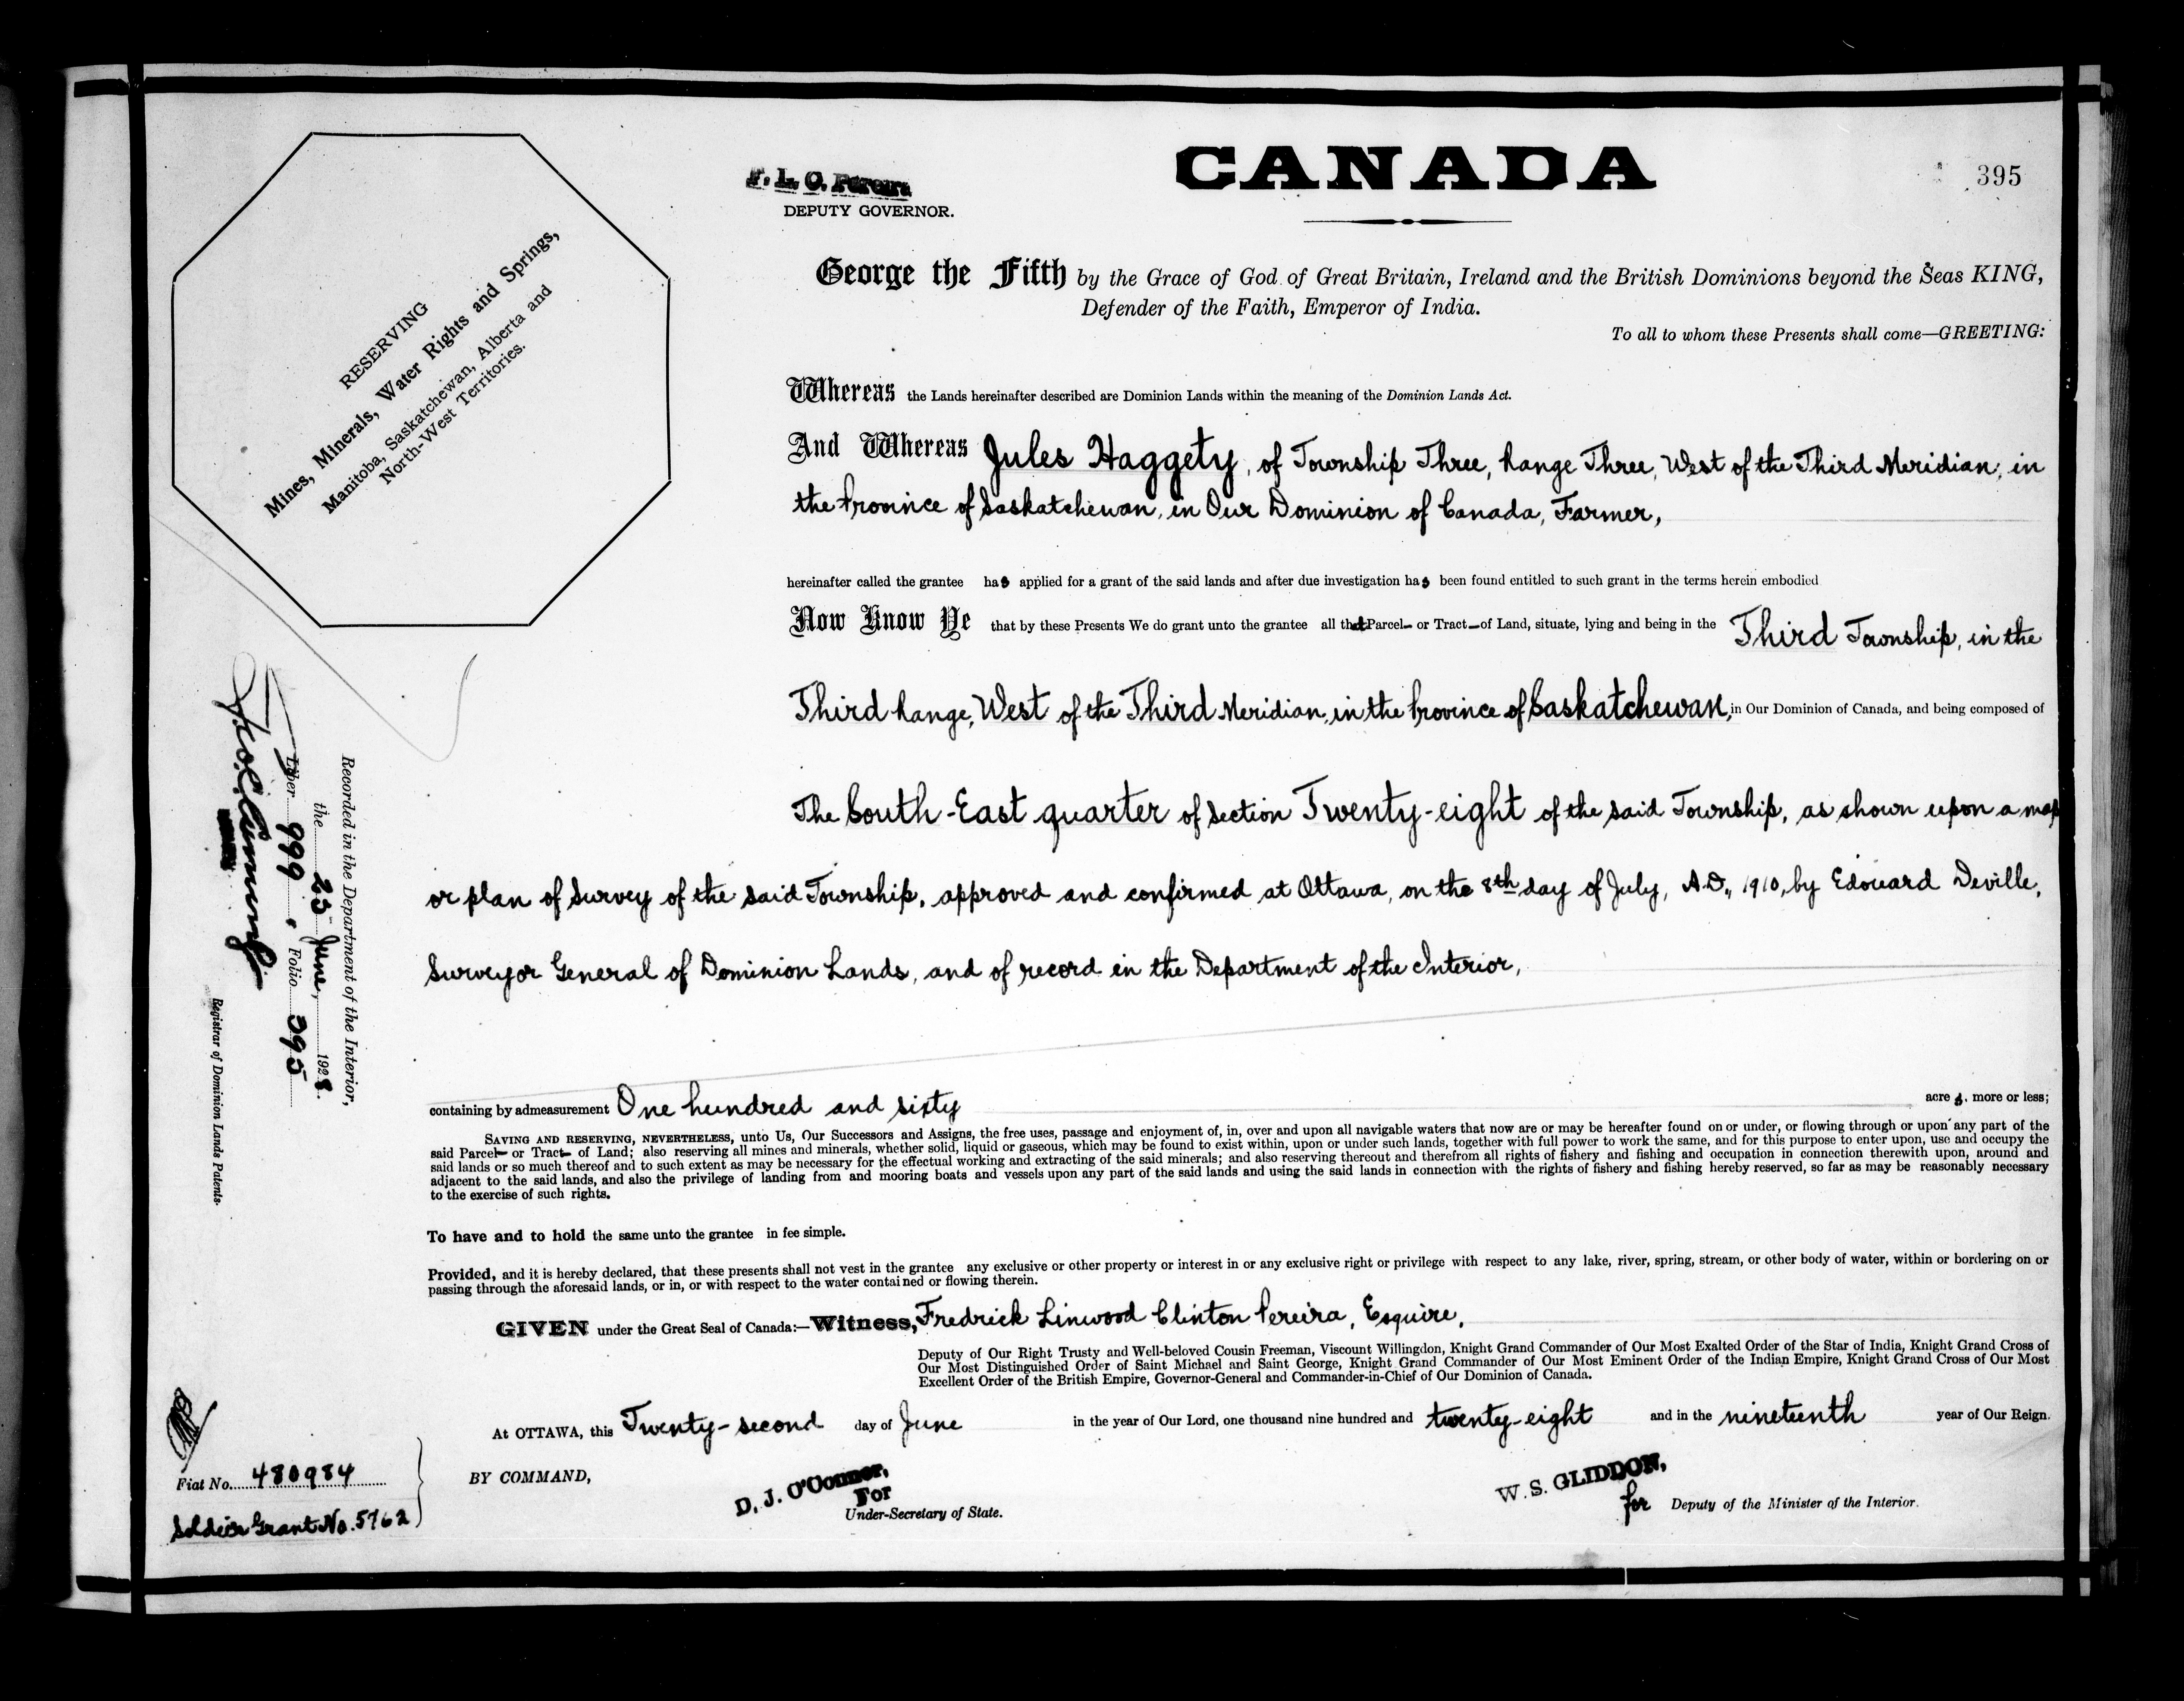 CANADA
395
F. L. C. Pereira
DEPUTY GOVERNOR.
RESERVING
Mines, Minerals, Water Rights and Springs,
Manitoba, Saskatchewan, Alberta and
North-West Territories.
George the Fifth by the Grace of God of Great Britain, Ireland and the British Dominions beyond the Seas KING,
Defender of the Faith, Emperor of India.
To all to whom these Presents shall come—GREETING:
Whereas the Lands hereinafter described are Dominion Lands within the meaning of the Dominion Lands Act.
And Whereas Jules Haggety, of Township Three, Range Three, West of the Third Meridian, in
the Province of Saskatchewan, in Our Dominion of Canada, Farmer,
hereinafter called the grantee has applied for a grant of the said lands and after due investigation has been found entitled to such grant in the terms herein embodied
Now Know Ye that by these Presents We do grant unto the grantee all that Parcel or Tract of Land, situate, lying and being in the Third Township, in the
Third Range, West of the Third Meridian, in the Province of Saskatchewan, in Our Dominion of Canada, and being composed of
The South-East quarter of Section Twenty-eight of the said Township, as shown upon a map
or plan of Survey of the said Township, approved and confirmed at Ottawa, on the 8th day of July, A.D., 1910, by Edouard Deville,
Surveyor General of Dominion Lands, and of record in the Department of the Interior,
containing by admeasurement One hundred and sixty acres, more or less;
SAVING AND RESERVING, NEVERTHELESS, unto Us, Our Successors and Assigns, the free uses, passage and enjoyment of, in, over and upon all navigable waters that now are or may be hereafter found on or under, or flowing through or upon any part of the
said Parcel or Tract of Land; also reserving all mines and minerals, whether solid, liquid or gaseous, which may be found to exist within, upon or under such lands, together with full power to work the same, and for this purpose to enter upon, use and occupy the
said lands or so much thereof and to such extent as may be necessary for the effectual working and extracting of the said minerals; and also reserving thereout and therefrom all rights of fishery and fishing and occupation in connection therewith upon, around and
adjacent to the said lands, and also the privilege of landing from and mooring boats and vessels upon any part of the said lands and using the said lands in connection with the rights of fishery and fishing hereby reserved, so far as may be reasonably necessary
to the exercise of such rights.
To have and to hold the same unto the grantee in fee simple.
Provided, and it is hereby declared, that these presents shall not vest in the grantee any exclusive or other property or interest in or any exclusive right or privilege with respect to any lake, river, spring, stream, or other body of water, within or bordering on or
passing through the aforesaid lands, or in, or with respect to the water contained or flowing therein.
GIVEN under the Great Seal of Canada:—Witness, Fredrick Linwood Clinton Pereira, Esquire,
Deputy of Our Right Trusty and Well-beloved Cousin Freeman, Viscount Willingdon, Knight Grand Commander of Our Most Exalted Order of the Star of India, Knight Grand Cross of
Our Most Distinguished Order of Saint Michael and Saint George, Knight Grand Commander of Our Most Eminent Order of the Indian Empire, Knight Grand Cross of Our Most
Excellent Order of the British Empire, Governor-General and Commander-in-Chief of Our Dominion of Canada.
At OTTAWA, this Twenty-second day of June in the year of Our Lord, one thousand nine hundred and twenty-eight and in the nineteenth year of Our Reign.
BY COMMAND,
D. J. O'Connor,
For
Under-Secretary of State.
W. S. GLIDDON,
for Deputy of the Minister of the Interior.
Recorded in the Department of the Interior,
the 23 June, 1928.
Liber 999, Folio 395
Registrar of Dominion Lands Patents.
Fiat No. 480984
Soldier Grant No. 5762